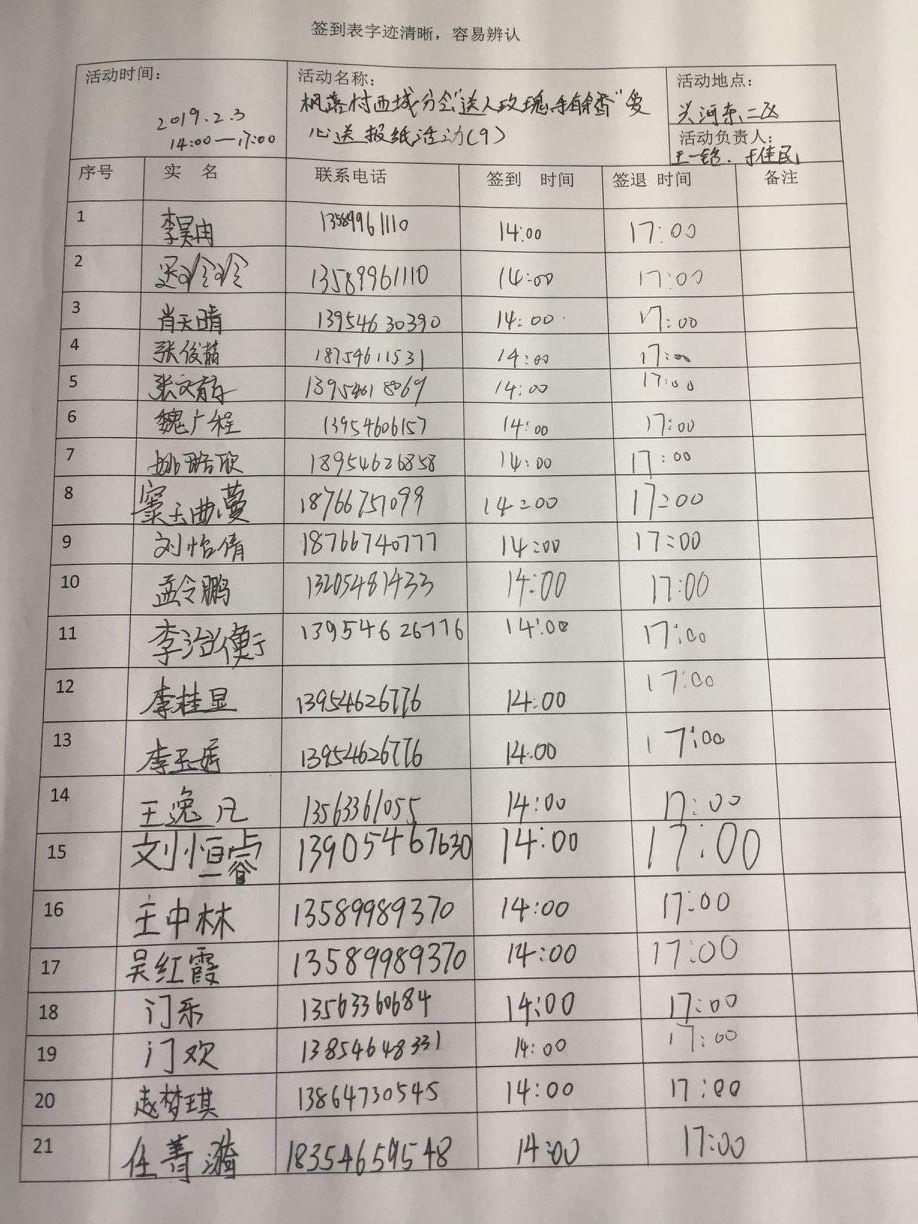 签到表字迹清晰，容易辨认
活动时间：
2019.2.3
14:00—17:00
活动名称：
枫落村西城分会"送人玫瑰,手有余香"爱
心送报纸活动(9)
活动地点：
活动负责人：
王一铭、于佳民
序号 实 名 联系电话 签到 时间 签退 时间 备注
1 李昊冉 13589961110 14:00 17:00
2 13589961110 14:00 17:00
3 肖天晴 13954630390 14:00 17:00
4 18754611531 14:00 17:00
5 14:00 17:00
6 魏广程 13954606157 14:00 17:00
7 18954626858 14:00 17:00
8 18766751099 14:00 17:00
9 刘怡倩 18766740777 14:00 17:00
10 孟令鹏 13205481433 14:00 17:00
11 13954626776 14:00 17:00
12 李桂显 13954626776 14:00 17:00
13 13954626776 14:00 17:00
14 王逸凡 13563361055 14:00 17:00
15 刘恒睿 13905467630 14:00 17:00
16 王中林 13589989370 14:00 17:00
17 吴红霞 13589989370 14:00 17:00
18 门乐 13563360684 14:00 17:00
19 门欢 13854648331 14:00 17:00
20 赵梦琪 13864730545 14:00 17:00
21 任菁漪 18354659548 14:00 17:00